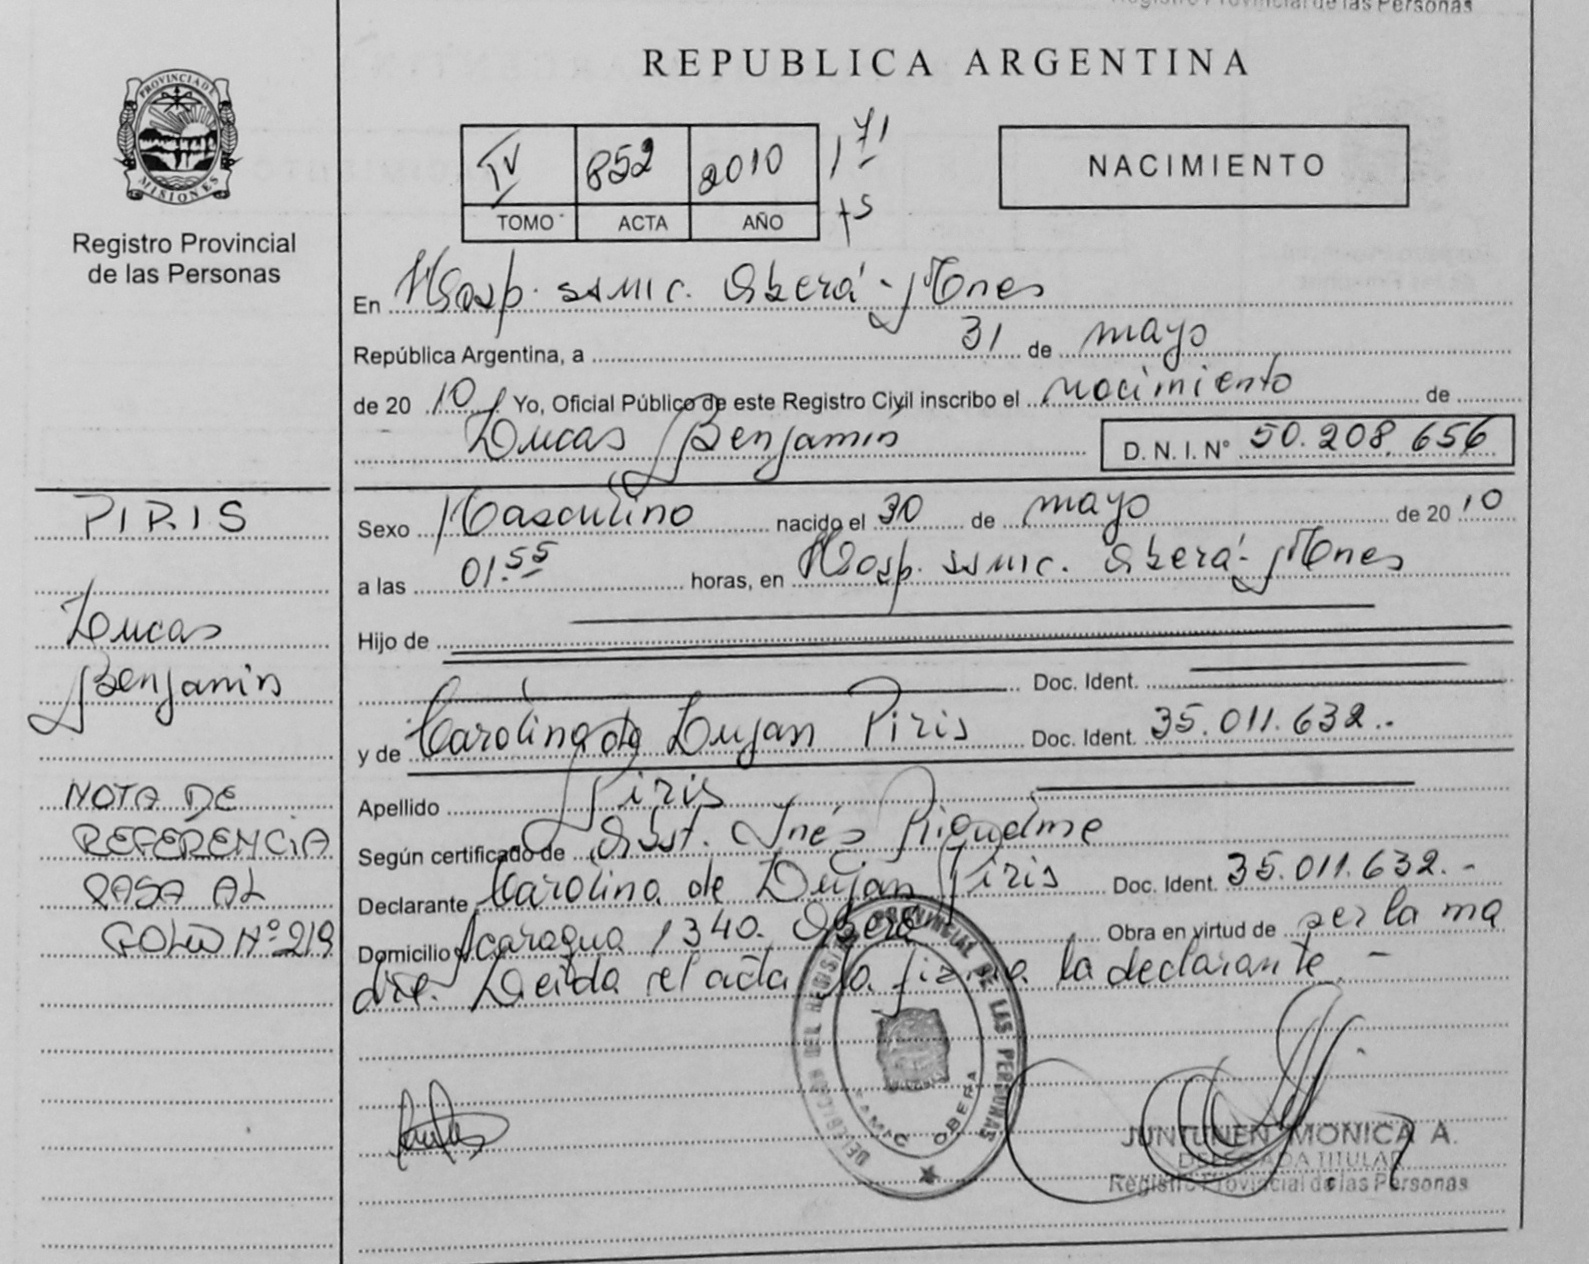 Registro Provincial de las Personas
REPUBLICA ARGENTINA
PROVINCIA DE MISIONES
Registro Provincial
de las Personas
IV 852 2010 171
TOMO ACTA AÑO
NACIMIENTO
En Hosp. SSMIC. Oberá - Mnes
República Argentina, a 31 de mayo
de 20 10 Yo, Oficial Público de este Registro Civil inscribo el nacimiento de
Lucas Benjamin D. N. I. N° 50.208.656
PIRIS
Lucas
Benjamin
NOTA DE
REFERENCIA
PASA AL
FOLIO Nº 219
Sexo Masculino nacido el 30 de mayo de 20 10
a las 01.55 horas, en Hosp. SSMIC. Oberá - Mnes
Hijo de
Doc. Ident.
y de Carolina de Lujan Piris Doc. Ident. 35.011.632..
Apellido Piris
Según certificado de Obst. Inés Riquelme
Declarante Carolina de Lujan Piris Doc. Ident. 35.011.632.-
Domicilio Acaragua 1340. Oberá Obra en virtud de ser la ma
dre. Leida el acta la firma la declarante. -
PROVINCIAL DE LAS PERSONAS
SAMIC OBERA
JUNTUNEN MONICA A.
DELEGADA TITULAR
Registro Provincial de las Personas